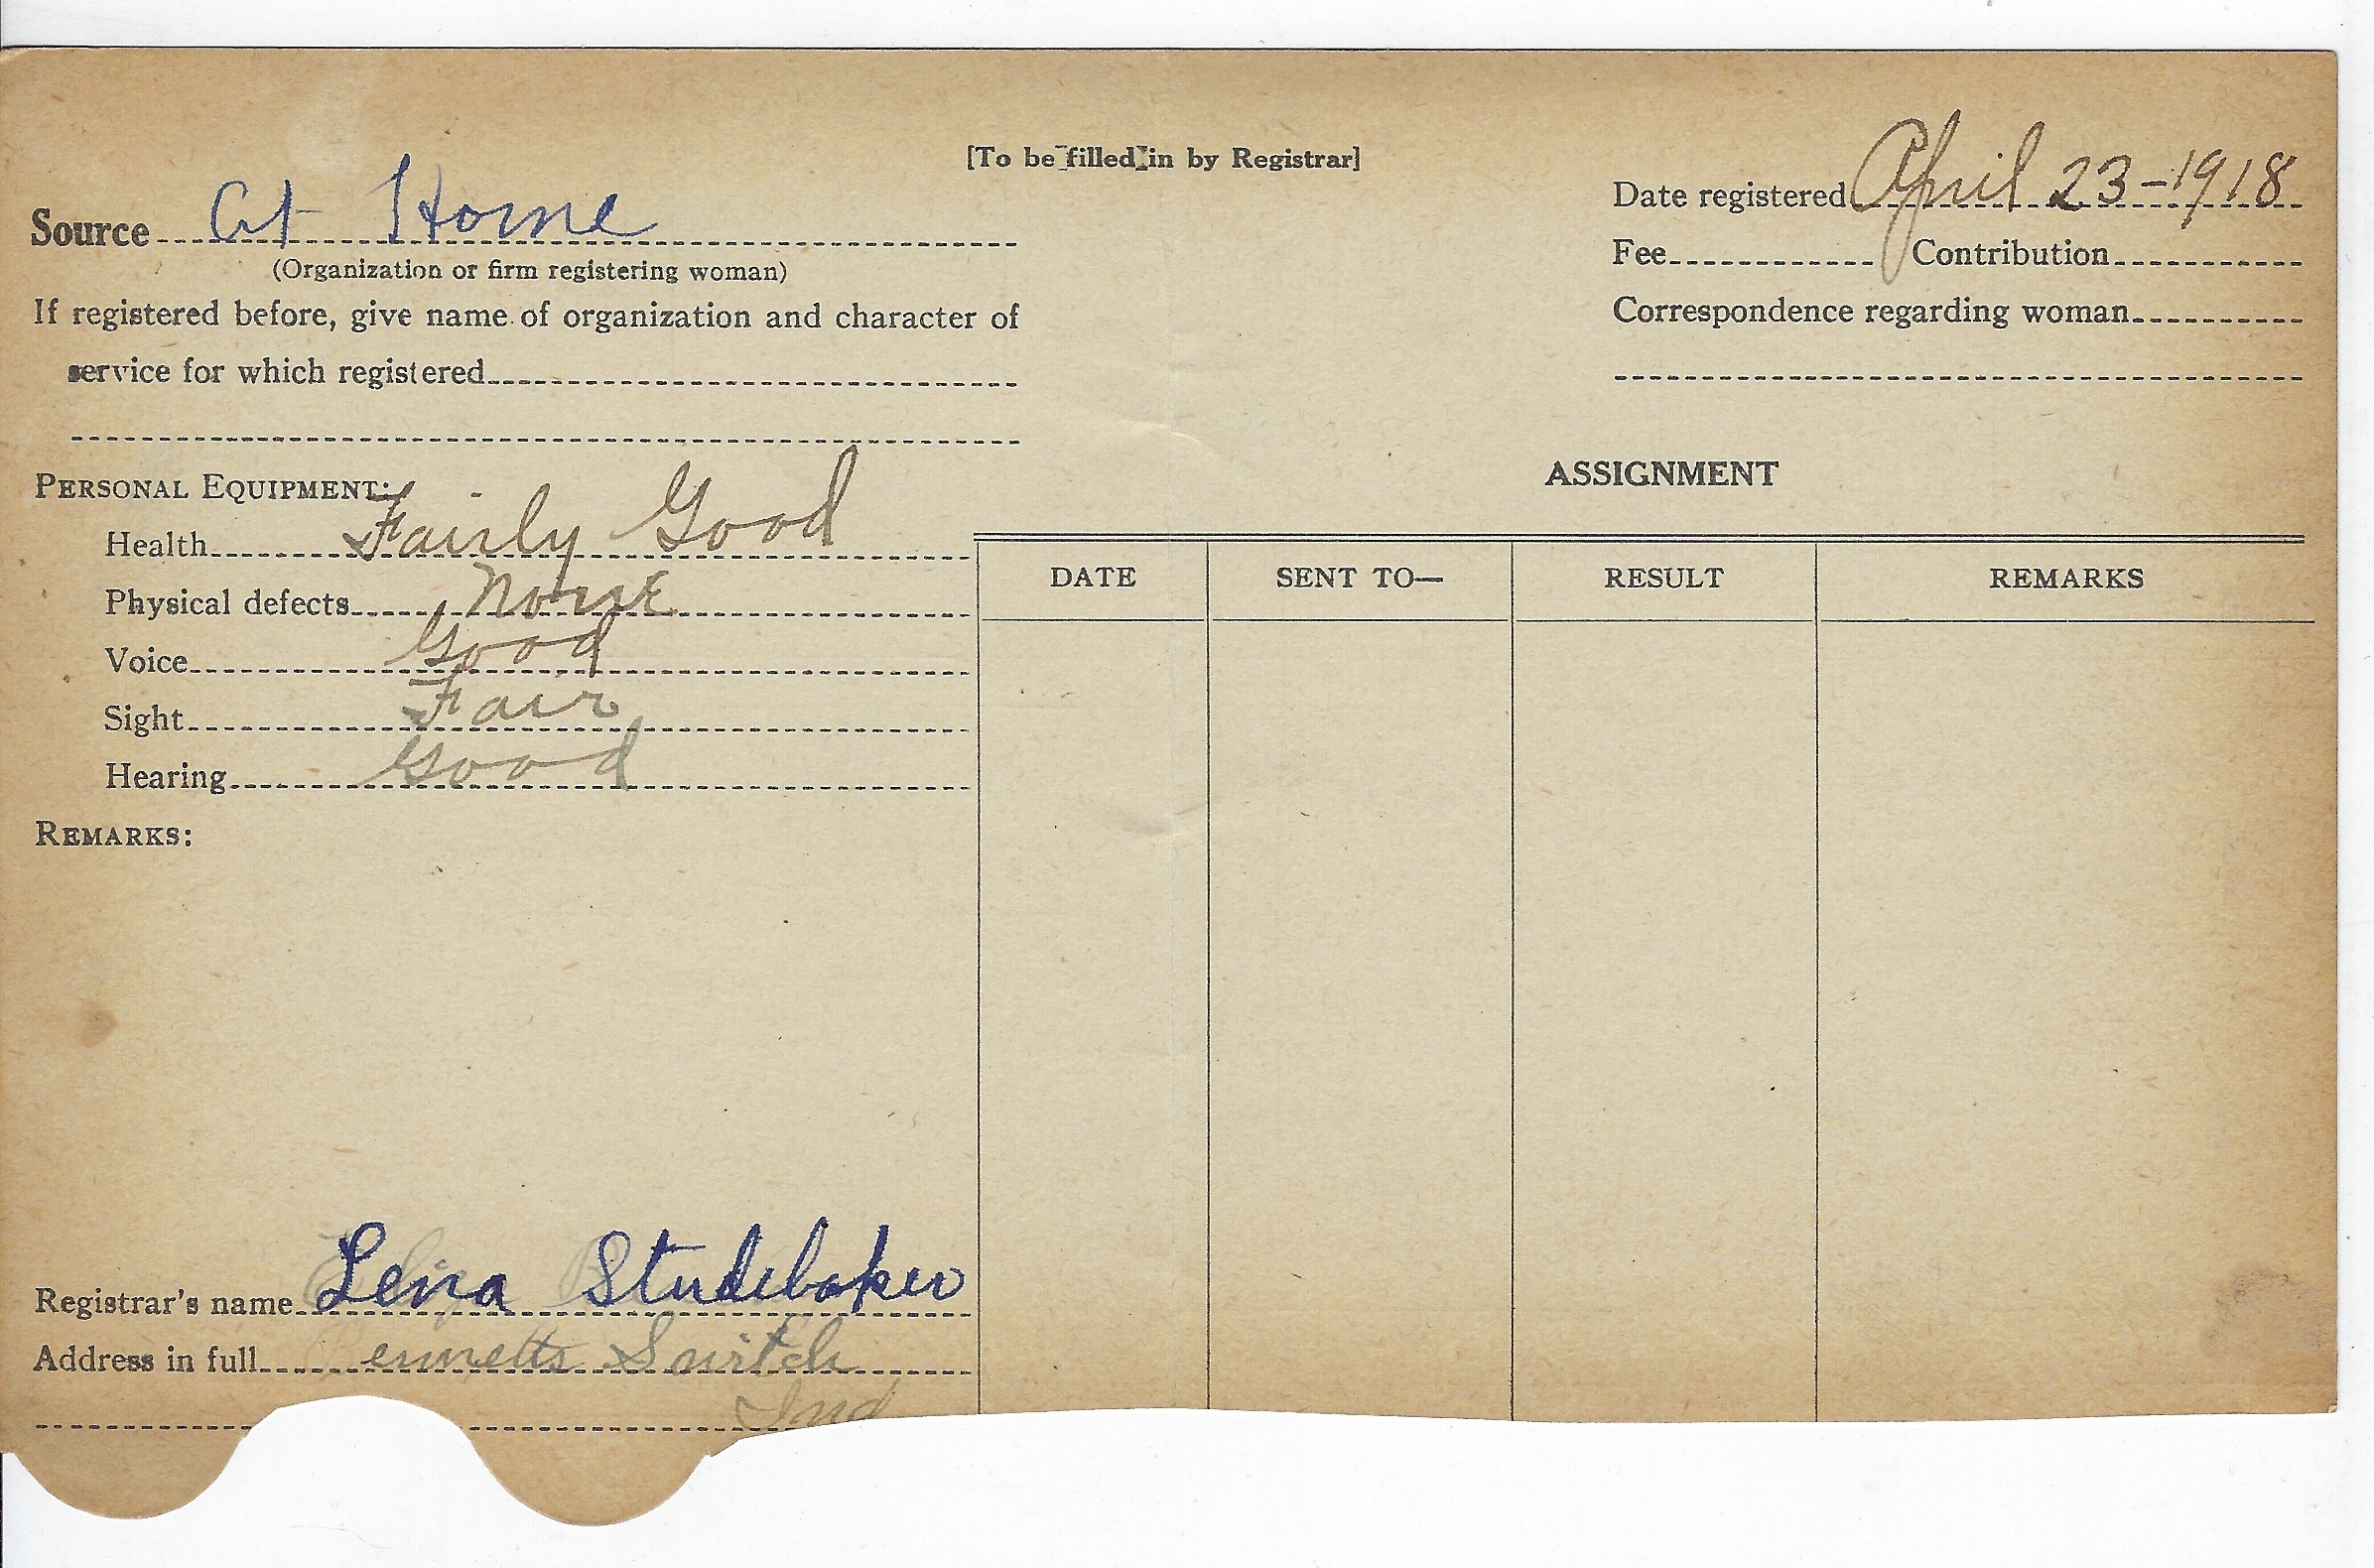 [To be filled in by Registrar]
Source At Home
(Organization or firm registering woman)
If registered before, give name of organization and character of
service for which registered
Date registered April 23-1918
Fee Contribution
Correspondence regarding woman
PERSONAL EQUIPMENT:
Health Fairly Good
Physical defects None
Voice Good
Sight Fair
Hearing Good
REMARKS:
ASSIGNMENT
DATE SENT TO— RESULT REMARKS
Registrar's name Lena Studebaker
Address in full Bennetts Switch
Ind